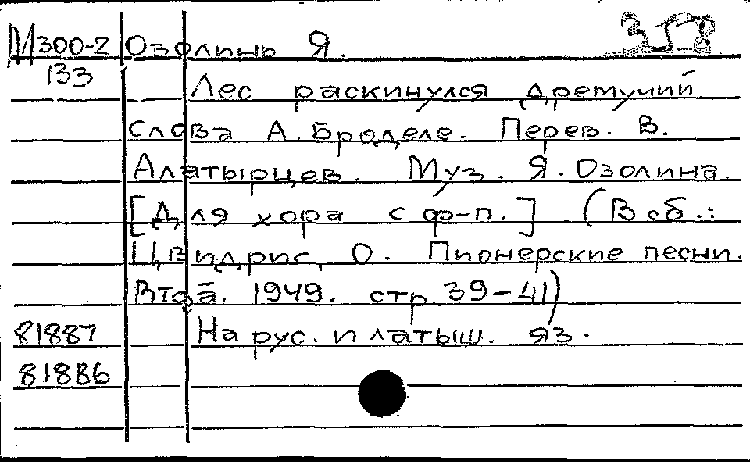 М300-2 Озолинь Я. 358
133
Лес раскинулся дремучий.
Слова А. Броделе. Перев. В.
Алатырцев. Муз. Я. Озолина.
[Для хора с ф-п.] (В сб.:
Цвидриг, О. Пионерские песни.
1949. стр 39-41)
81887 На рус. и латыш. яз.
81886